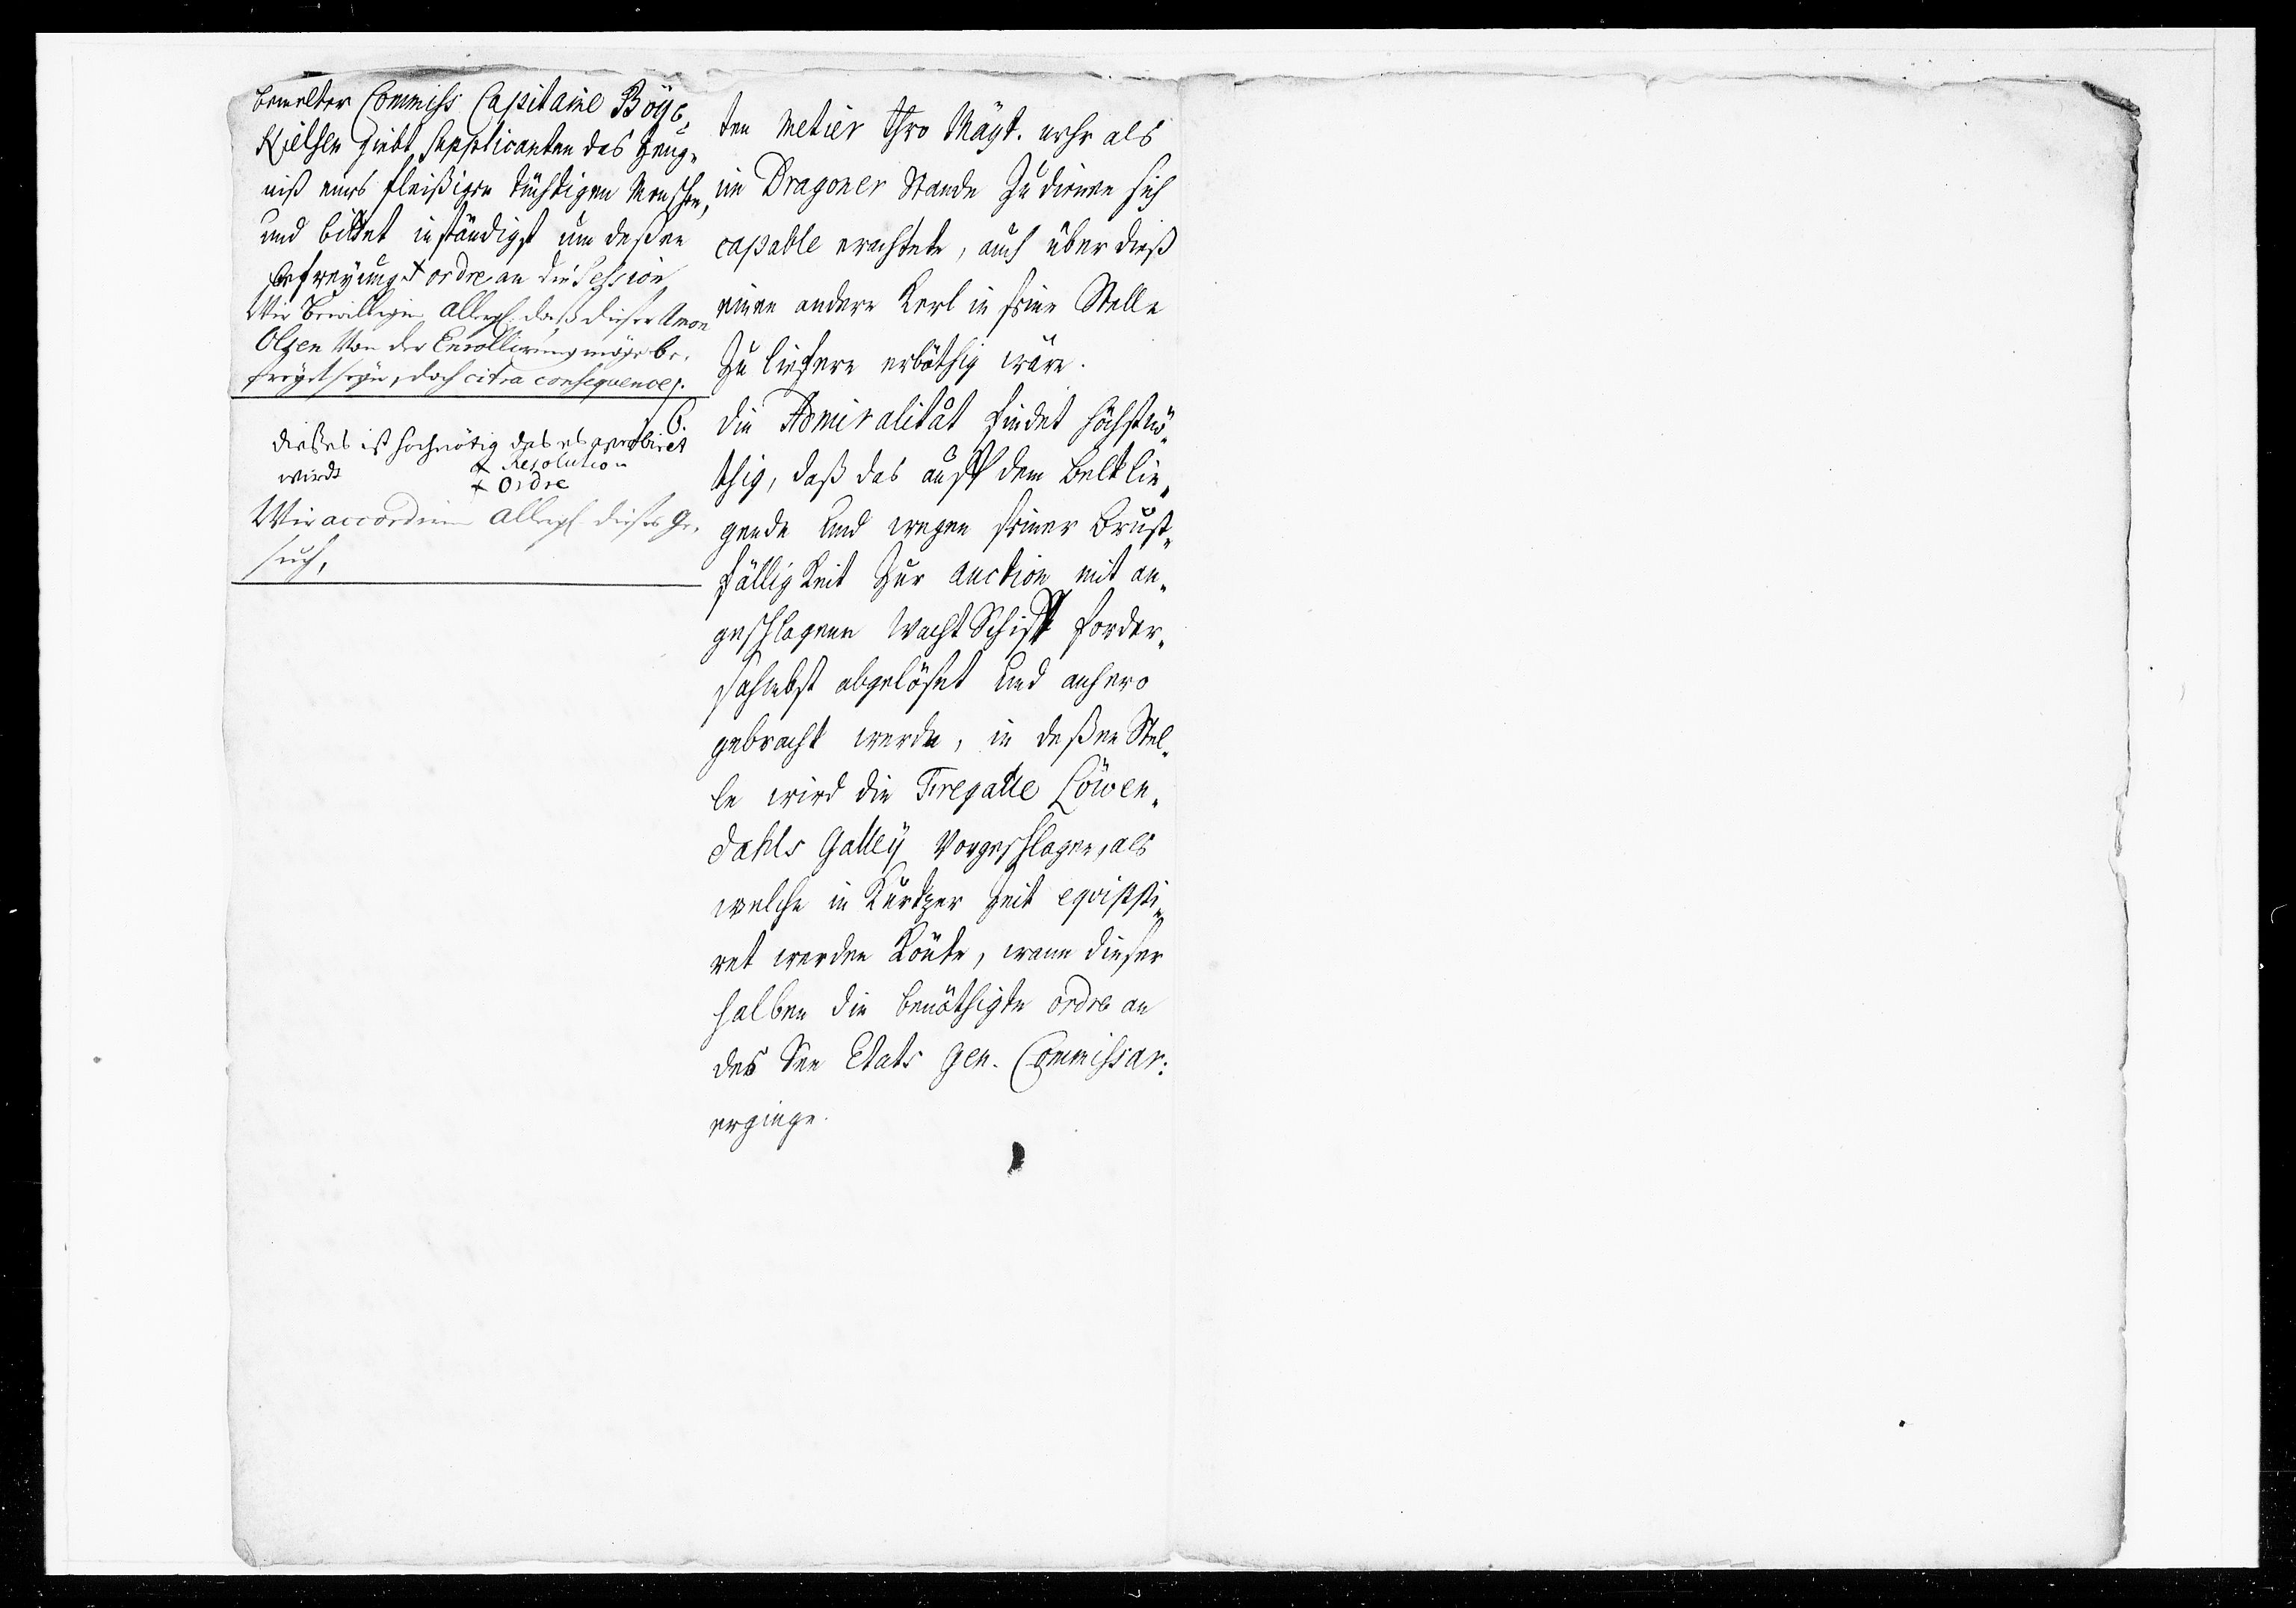 bemelter Commiss Capitaine Böye
Nielsen giebt Supplicanten das Zeug¬
niß eines fleißigen tüchtigen Menschen,
und bittet inständigst um deßen
befreyung + ordre an die Session
Wir Bewilligen allergst: daß dieser Amon
Olsen Von der Enrollirung möge be¬
freyet seyn, doch citra consequence.
6.
dieses ist hochnötig das es aprobiret
wirdt + Resolution
+ Ordre
Wir accordiren allergst dieses Ge¬
such,
ten Metier Ihro Mayt. mehr als
im Dragoner Stande zu dienen sich
capable erachtete, auch über dieß
einen andern Kerl in seine Stelle
zu liefern erböthig wäre.
Die Admiralität findet höchstnö¬
thig, daß das auff dem Belt lie¬
gende und wegen seiner Brust¬
fälligkeit zur auction mit an¬
geschlagene Wacht Schiff forder¬
sahmbst abgelöset und anhero
gebracht werde, in deßen Stel¬
le wird die Fregatte Löwen¬
dahls Galley vorgeschlagen, als
welche in kurtzer Zeit equippi¬
ret werden könte, wann dieser
halben die benöthigte ordre an
des See Etats Gen. Commissar:
erginge.